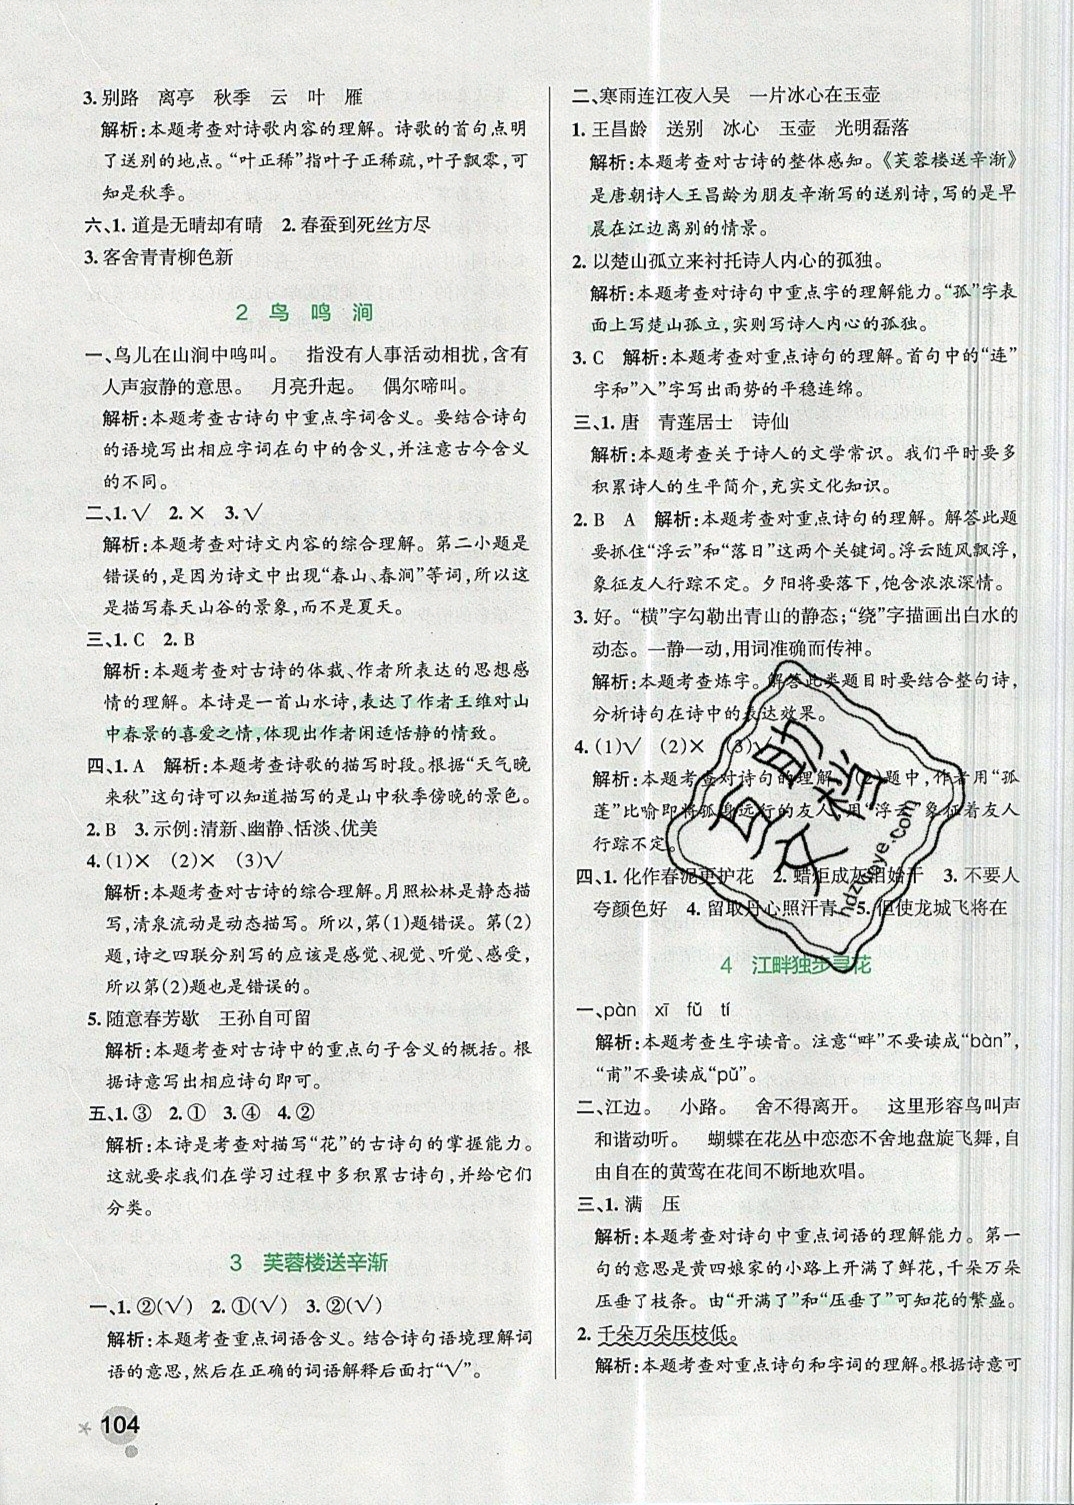 3. 别路　离亭　秋季　云　叶　雁
解析:本题考查对诗歌内容的理解。诗歌的首句点明
了送别的地点。“叶正稀”指叶子正稀疏,叶子飘零,可
知是秋季。
六、1. 道是无晴却有晴　2. 春蚕到死丝方尽
3. 客舍青青柳色新
2　鸟　鸣　涧
一、鸟儿在山涧中鸣叫。　指没有人事活动相扰,含有
人声寂静的意思。　月亮升起。　偶尔啼叫。
解析:本题考查古诗句中重点字词含义。要结合诗句
的语境写出相应字词在句中的含义,并注意古今含义
的不同。
二、1. √　2. ×　3. √
解析:本题考查对诗文内容的综合理解。第二小题是
错误的,是因为诗文中出现“春山、春涧”等词,所以这
是描写春天山谷的景象,而不是夏天。
三、1. C　2. B
解析:本题考查对古诗的体裁、作者所表达的思想感
情的理解。本诗是一首山水诗,表达了作者王维对山
中春景的喜爱之情,体现出作者闲适恬静的情致。
四、1. A　解析:本题考查诗歌的描写时段。根据“天气晚
来秋”这句诗可以知道描写的是山中秋季傍晚的景色。
2. B　3. 示例:清新、幽静、恬淡、优美
4. (1)×　(2)×　(3)√
解析:本题考查对古诗的综合理解。月照松林是静态描
写,清泉流动是动态描写。所以,第(1)题错误。第(2)
题,诗之四联分别写的应该是感觉、视觉、听觉、感受,
所以第(2)题也是错误的。
5. 随意春芳歇　王孙自可留
解析:本题考查对古诗中的重点句子含义的概括。根
据诗意写出相应诗句即可。
五、1. ③　2. ①　3. ④　4. ②
解析:本诗是考查对描写“花”的古诗句的掌握能力。
这就要求我们在学习过程中多积累古诗句,并给它们
分类。
3　芙蓉楼送辛渐
一、1. ②(√)　2. ①(√)　3. ②(√)
解析:本题考查重点词语含义。结合诗句语境理解词
语的意思,然后在正确的词语解释后面打“√”。
104
二、寒雨连江夜人吴　一片冰心在玉壶
1. 王昌龄　送别　冰心　玉壶　光明磊落
解析:本题考查对古诗的整体感知。《芙蓉楼送辛渐》
是唐朝诗人王昌龄为朋友辛渐写的送别诗,写的是早
晨在江边离别的情景。
2. 以楚山孤立来衬托诗人内心的孤独。
解析:本题考查对诗句中重点字的理解能力。“孤”字表
面上写楚山孤立,实则写诗人内心的孤独。
3. C　解析:本题考查对重点诗句的理解。首句中的“连”
字和”入”字写出雨势的平稳连绵。
三、1. 唐　青莲居士　诗仙
解析:本题考查关于诗人的文学常识。我们平时要多
积累诗人的生平简介,充实文化知识。
2. B　A　解析:本题考查对重点诗句的理解。解答此题
要抓住“浮云”和“落日”这两个关键词。浮云随风飘浮,
象征友人行踪不定。夕阳将要落下,饱含浓浓深情。
3. 好。“横”字勾勒出青山的静态;“绕”字描画出白水的
动态。一静一动,用词准确而传神。
解析:本题考查炼字。解答此类题目时要结合整句诗,
分析诗句在诗中的表达效果。
4. (1)√　(2)×　(3)√
解析:本题考查对诗句的理解。(2)题中,作者用“孤
蓬”比喻即将孤身远行的友人,用“浮云”象征着友人
行踪不定。
四、1. 化作春泥更护花　2. 蜡炬成灰泪始干　3. 不要人
夸颜色好　4. 留取丹心照汗青　5. 但使龙城飞将在
作业精灵
hdzuoye.com
4　江畔独步寻花
一、pàn　xī　fǔ　tí
解析:本题考查生字读音。注意“畔”不要读成“bàn”,
“甫”不要读成“pǔ”。
二、江边。　小路。　舍不得离开。　这里形容鸟叫声
和谐动听。　蝴蝶在花丛中恋恋不舍地盘旋飞舞,自
由自在的黄莺在花间不断地欢唱。
三、1. 满　压
解析:本题考查对诗句中重点词语的理解能力。第一
句的意思是黄四娘家的小路上开满了鲜花,千朵万朵
压垂了枝条。由“开满了”和“压垂了”可知花的繁盛。
2. 千朵万朵压枝低。
解析:本题考查对重点诗句和字词的理解。根据诗意可